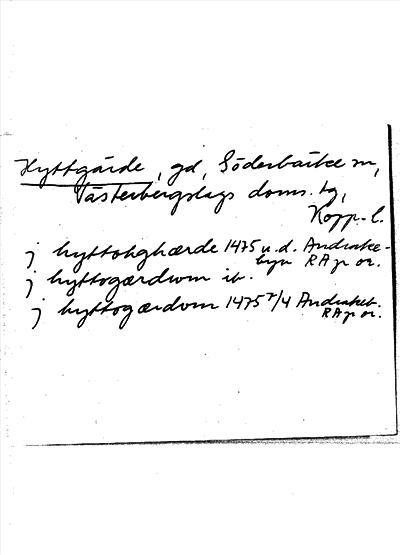 Hyttgärde, gd, Söderbärke sn,
Västerbergslags doms. tg,
Kopp. l.
j hyttohghærde 1475 u.d. Andreke-
byn RAp or.
j hyttogærdhom ib.
j hyttogærdom 1475 7/4 Andrekeb.
RAp or.